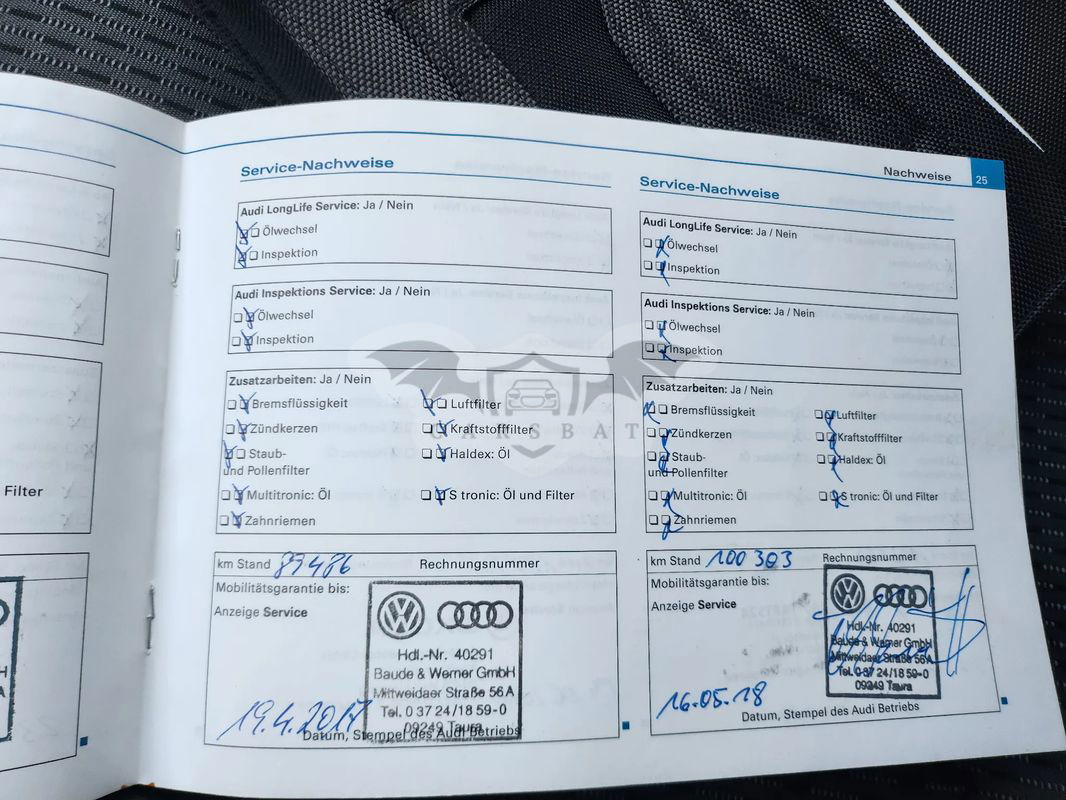 Nachweise 25
Service-Nachweise
Audi LongLife Service: Ja / Nein
Ölwechsel
Inspektion
Audi Inspektions Service: Ja / Nein
Ölwechsel
Inspektion
Zusatzarbeiten: Ja / Nein
Bremsflüssigkeit
Luftfilter
Zündkerzen
Kraftstofffilter
Staub-
und Pollenfilter
Haldex: Öl
Multitronic: Öl
S tronic: Öl und Filter
Zahnriemen
km Stand 89486 Rechnungsnummer
Mobilitätsgarantie bis:
Anzeige Service
Hdl.-Nr. 40291
Baude & Werner GmbH
Mittweidaer Straße 56 A
Tel. 0 37 24/18 59-0
09249 Taura
19.4.2017
Datum, Stempel des Audi Betriebs
Service-Nachweise
Audi LongLife Service: Ja / Nein
Ölwechsel
Inspektion
Audi Inspektions Service: Ja / Nein
Ölwechsel
Inspektion
Zusatzarbeiten: Ja / Nein
Bremsflüssigkeit
Luftfilter
Zündkerzen
Kraftstofffilter
Staub-
und Pollenfilter
Haldex: Öl
Multitronic: Öl
S tronic: Öl und Filter
Zahnriemen
km Stand 100 303 Rechnungsnummer
Mobilitätsgarantie bis:
Anzeige Service
Hdl.-Nr. 40291
Baude & Werner GmbH
Mittweidaer Straße 56 A
Tel. 0 37 24/18 59-0
09249 Taura
16.05.18
Datum, Stempel des Audi Betriebs
Filter
CARSBAT